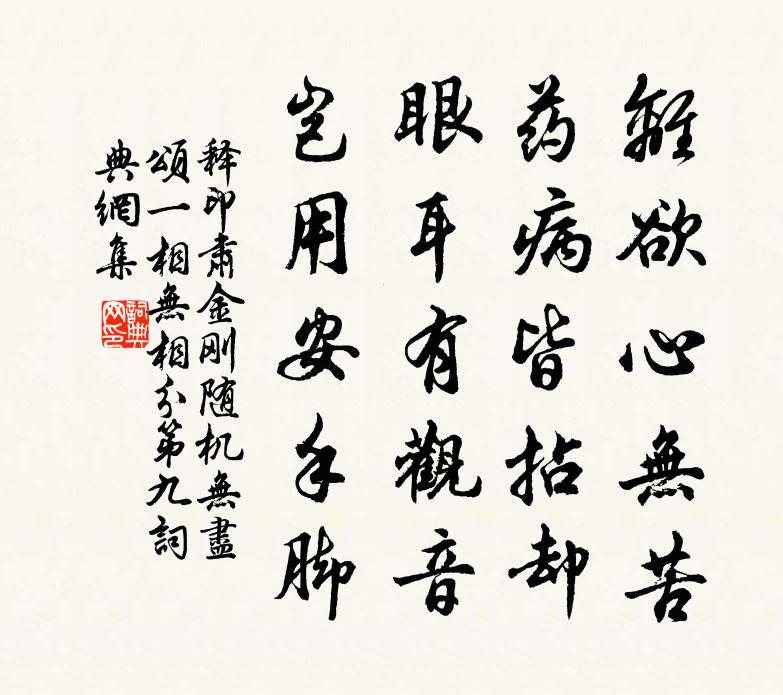 離欲心無苦
药病皆拈却
眼耳有觀音
岂用安手脚
释印肅金刚随机無盡
頌一相無相分第九詞
典網集
詞典
网印